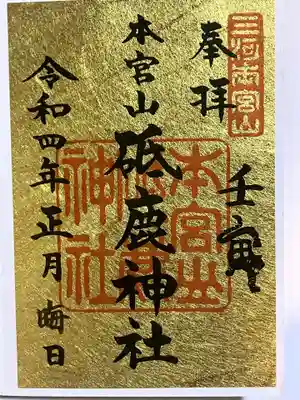 三河本宮山
奉拝
壬寅
本宮山
砥鹿神社
令和四年正月晦日
本宮山
神社